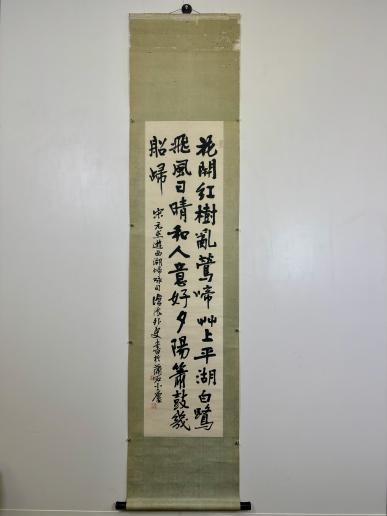 花開紅樹亂鶯啼艸上平湖白鷺
飛風日晴和人意好夕陽簫鼓幾
船歸
宋元杰遊西湖歸